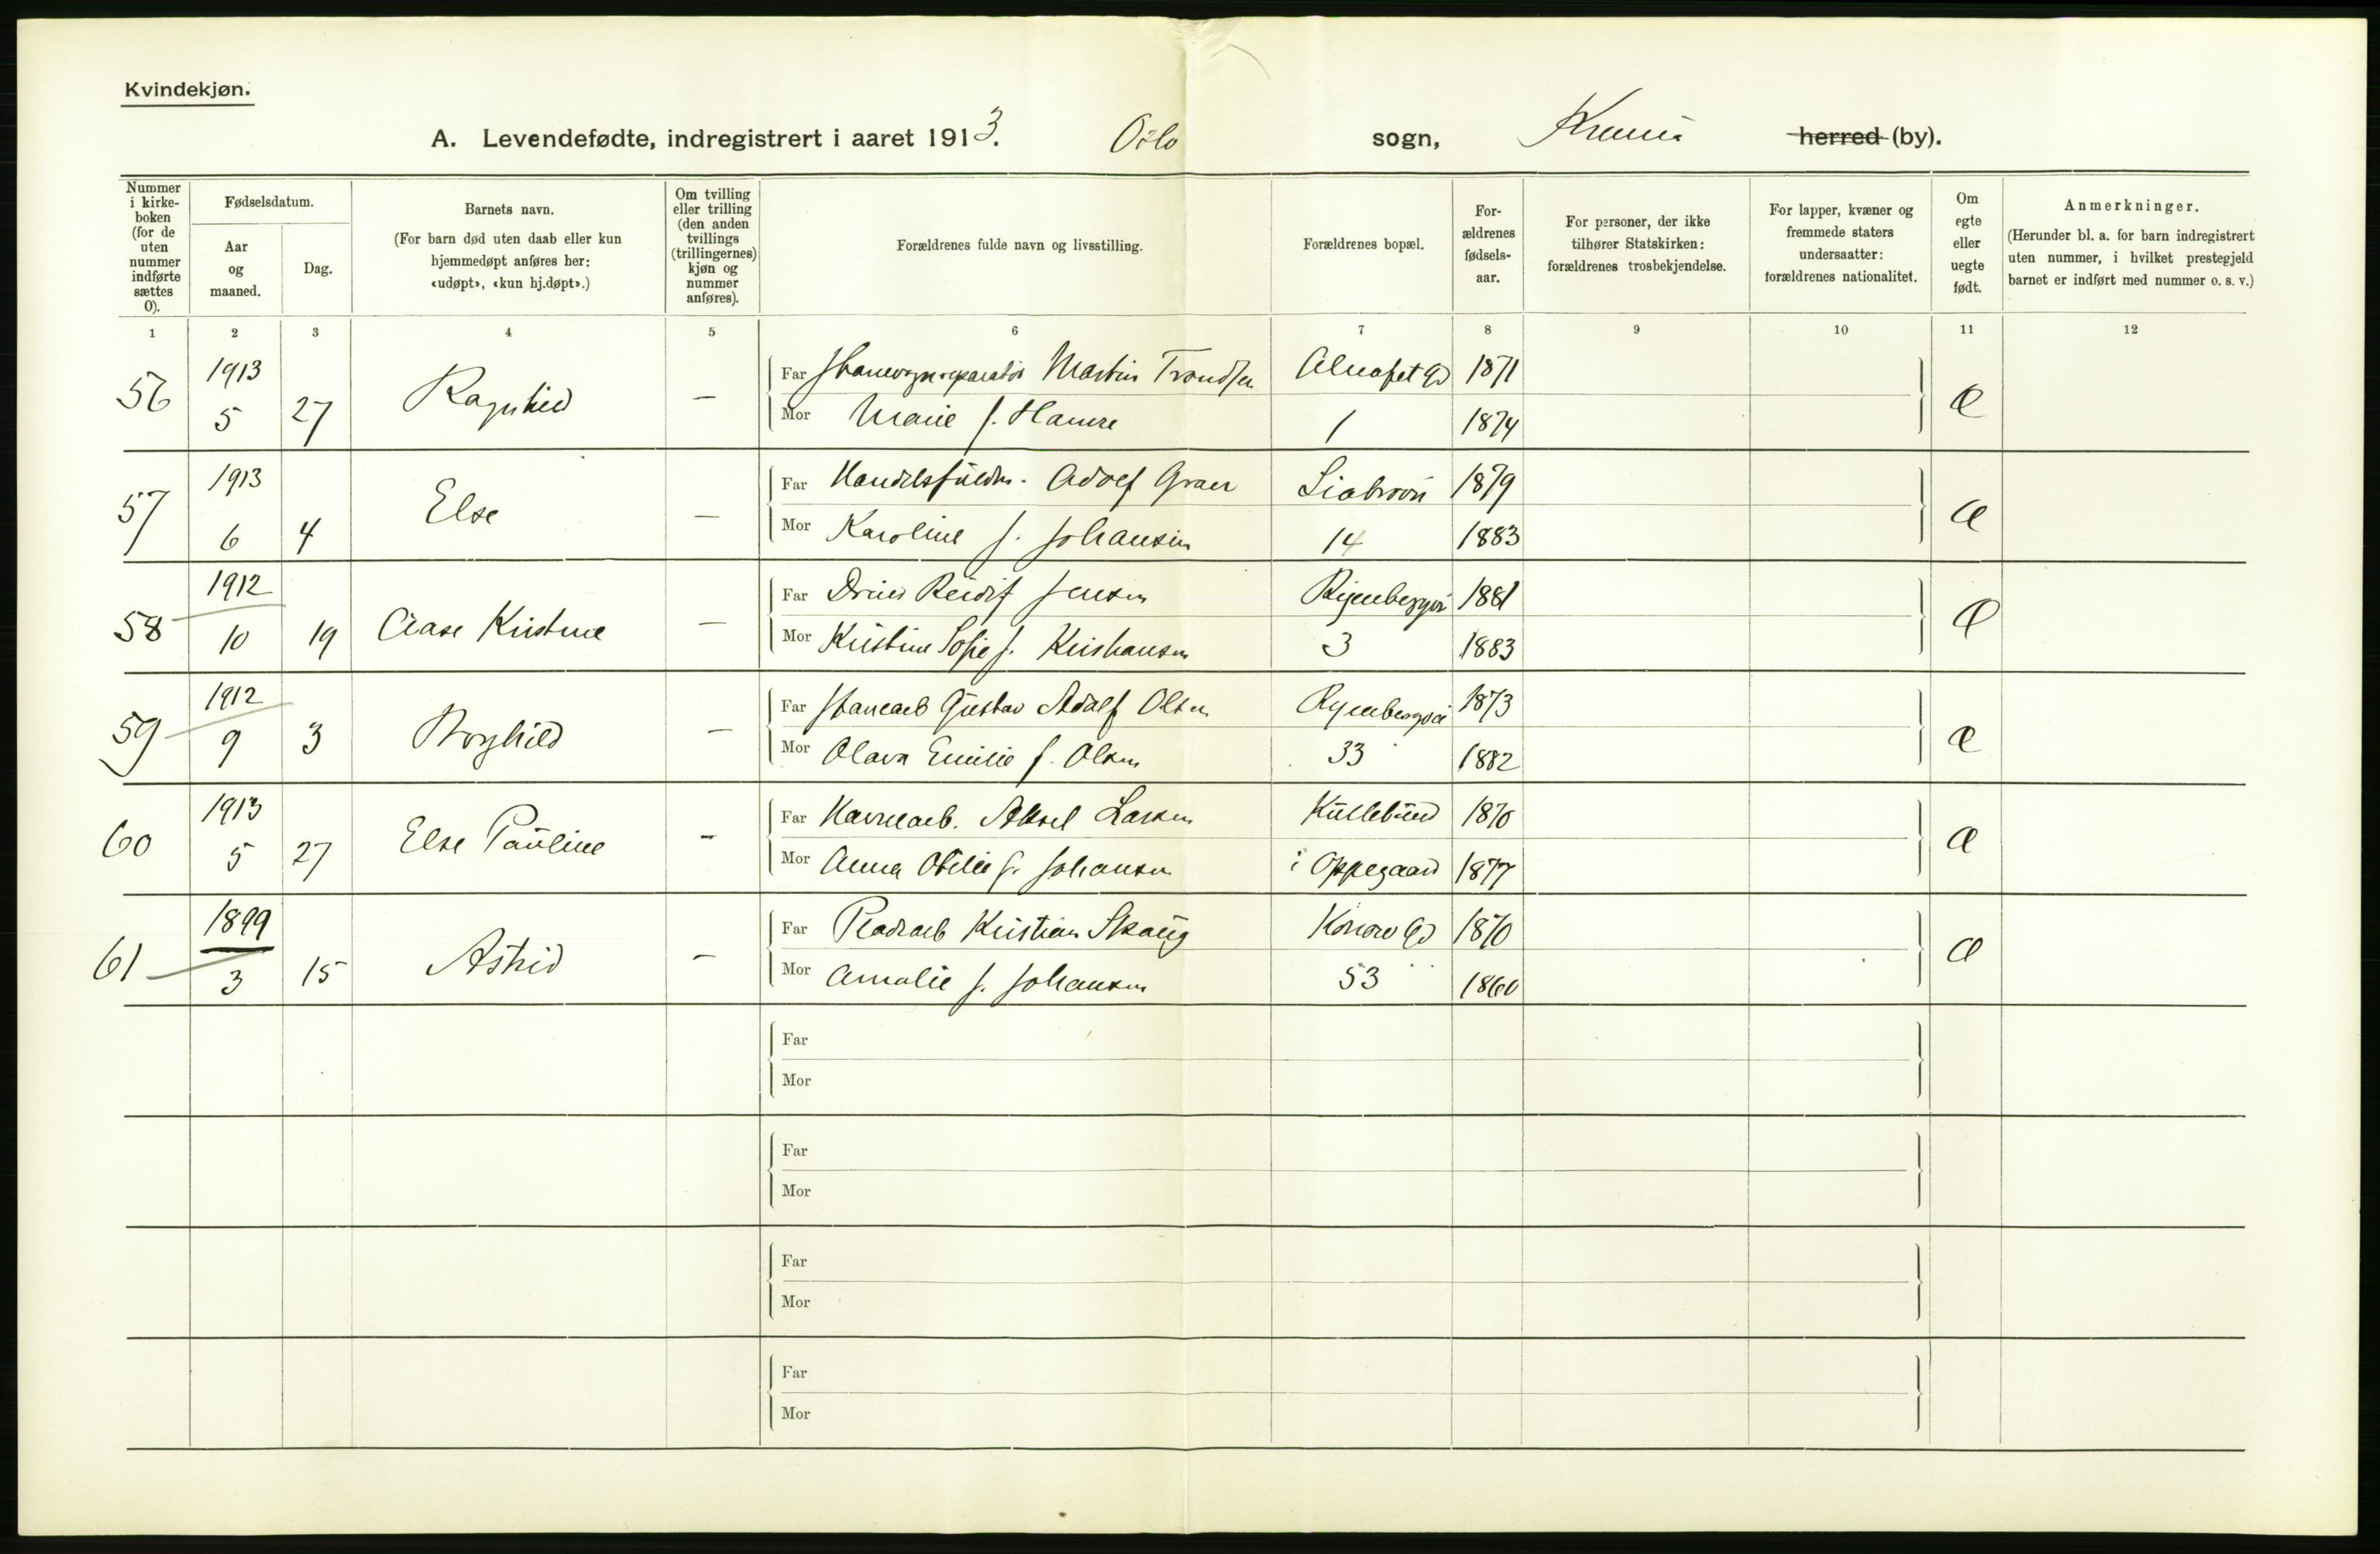 Kvindekjøn.
A. Levendefødte, indregistrert i aaret 1913. Oslo sogn, Krania herred (by).
Nummer i kirkeboken (for de uten nummer indførte sættes 0).
Fødselsdatum.
Aar og maaned.
Dag.
Barnets navn.
(For barn død uten daab eller kun hjemmedøpt anføres her: «udøpt», «kun hj.døpt».)
Om tvilling eller trilling (den anden tvillings (trillingernes) kjøn og nummer anføres).
Forældrenes fulde navn og livsstilling.
Forældrenes bopæl.
For-ældrenes fødsels-aar.
For personer, der ikke tilhører Statskirken: forældrenes trosbekjendelse.
For lapper, kvæner og fremmede staters undersaatter: forældrenes nationalitet.
Om egte eller uegte født.
Anmerkninger.
(Herunder bl. a. for barn indregistrert uten nummer, i hvilket prestegjeld barnet er indført med nummer o. s. v.)
1 2 3 4 5 6 7 8 9 10 11 12
56 1913 5 27 Ragnhild —
Far Martin Trondsen 1871
Mor Marie f. Hamre 1 1874
Æ
57 1913 6 4 Else —
Far Adolf Graer Liabrovn 1879
Mor Karoline f. Johansen 14 1883
Æ
58 1912 10 19 Aase Kristine —
Far Jensen Ryenbergvei 1881
Mor Kristine Sofie f. Kristiansen 3 1883
Æ
59 1912 9 3 Borghild —
Far Gustav Adolf Olsen Ryenbergvei 1873
Mor Olava Emilie f. Olsen 33 1882
Æ
60 1913 5 27 Else Pauline —
Far Havnearb. Aksel Larsen Kullebund 1870
Mor Anna Otilie f. Johansen i Oppegaard 1877
Æ
61 1899 3 15 Astrid —
Far Kristian Skaug Konow Gd 1870
Mor Amalie f. Johansen 53 1860
Æ
Far
Mor
Far
Mor
Far
Mor
Far
Mor